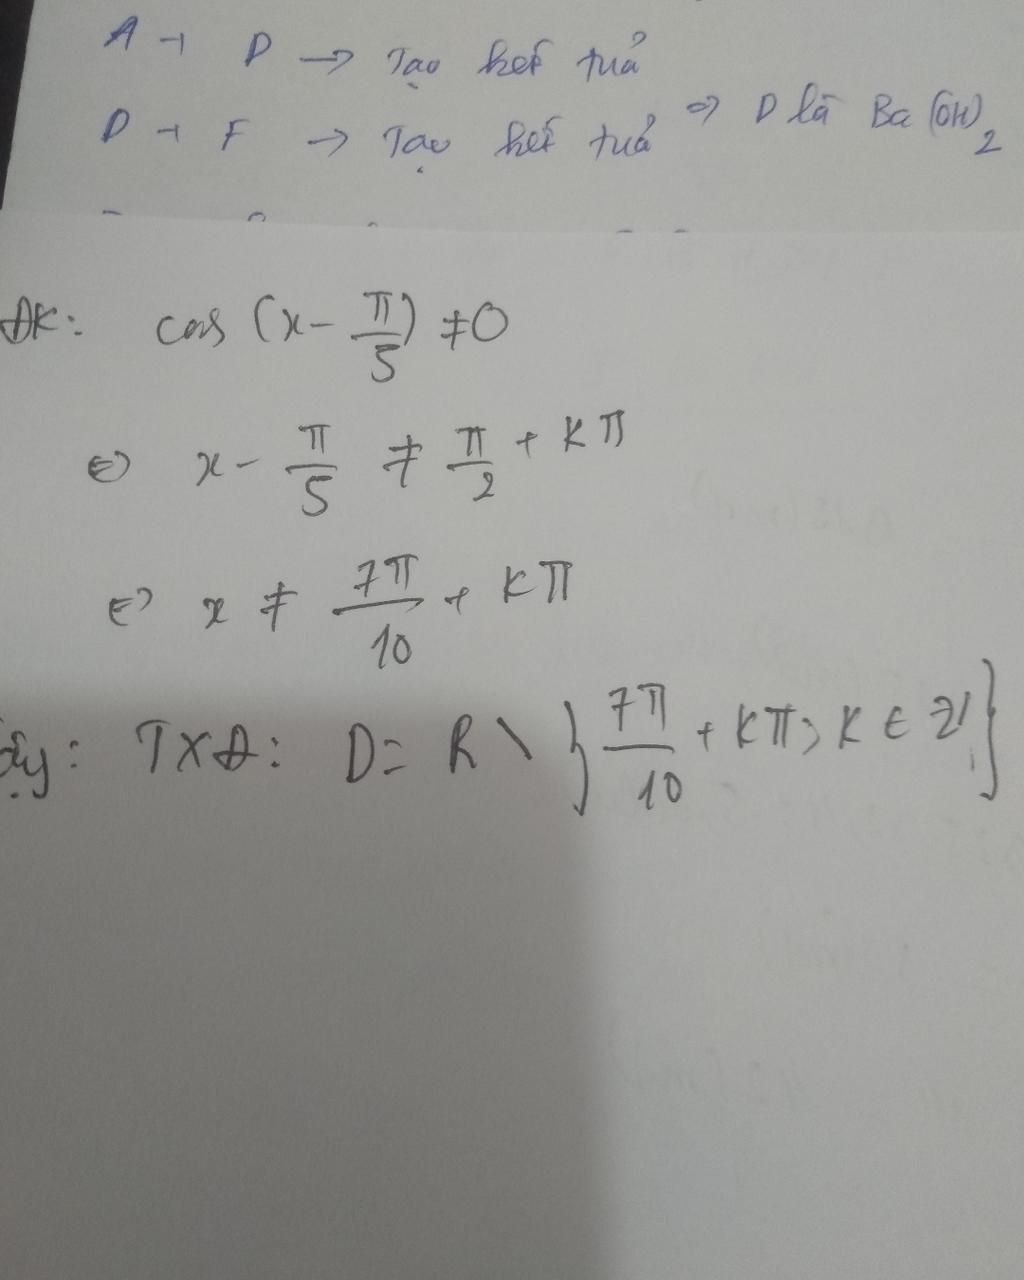 A + D → Tạo kết tuả
D + F → Tạo kết tuả ⇒ D là Ba(OH)2
ĐK: cos (x - π/5) ≠ 0
⇔ x - π/5 ≠ π/2 + kπ
⇔ x ≠ 7π/10 + kπ
ậy: TXĐ: D = R \ } 7π/10 + kπ; k ∈ Z }